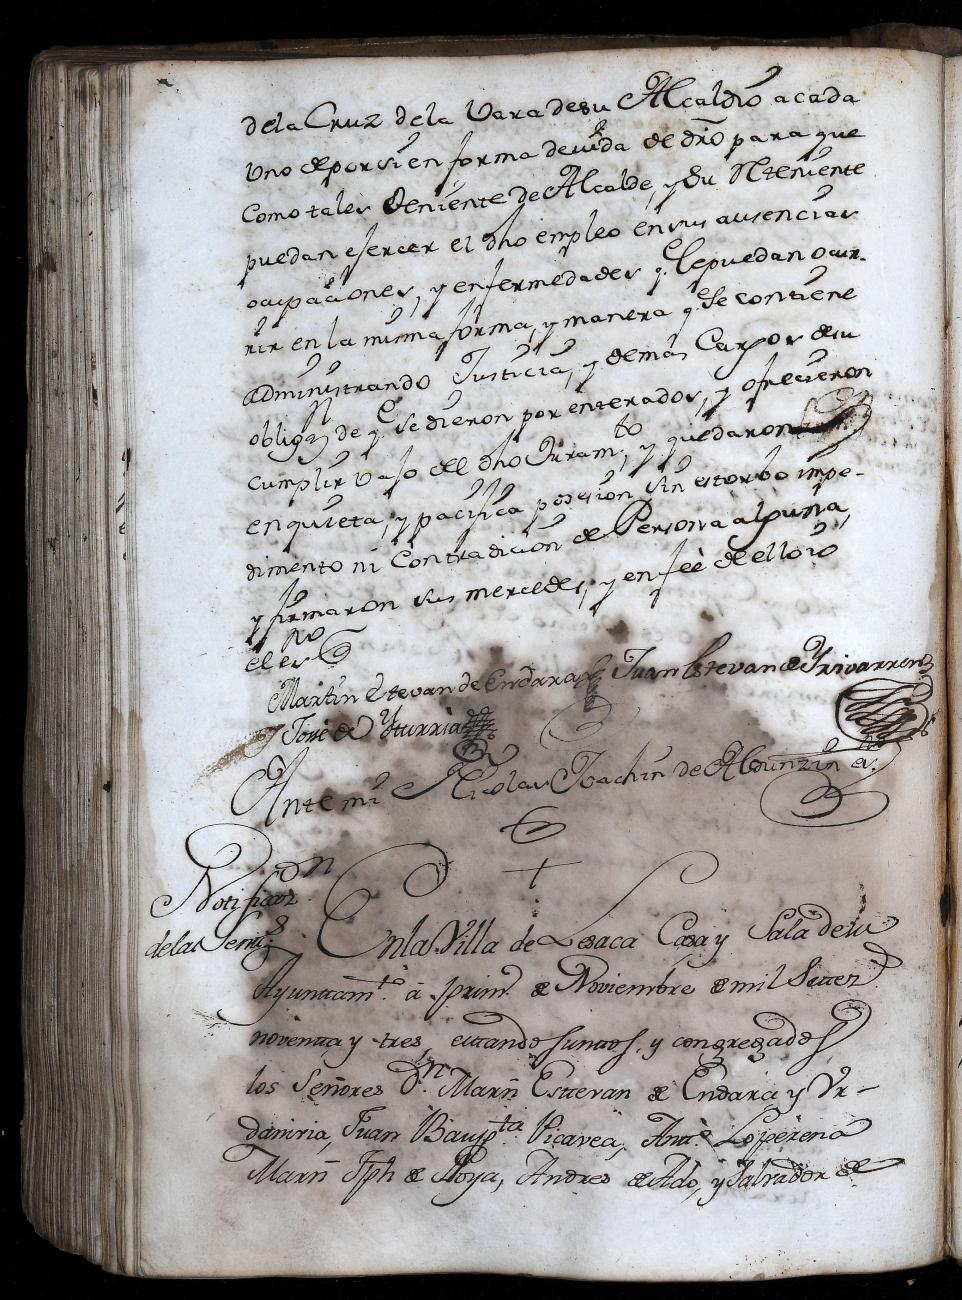 de la Cruz de la Vara de su Alcaldio a cada
Uno de por si en forma devida de dro para que
Como tales Teniente de Alcalde, y su Ntteniente
puedan ejercer el dho empleo en sus ausencias
ocupaciones, y enfermedades q. le puedan ocur-
rir en la misma forma, y manera q. Se contiene
administrando Justicia, y demás Cargos de su
obligⁿ de q. se dieron por enterados, y ofrecieron
cumplir vajo del dho Juramto, y quedaron
en quieta, y pacifica posesion sin estorbo impe-
dimento ni Contradicion de Persona alguna,
y firmaron sus mercedes, y en feè de ello io
el esno
Martin Estevan de Endara Juan Estevan de Yrivarren
Josè de Yturria
Ante mi Nicolas Joachin de Alduncin esno
+
Notificacion
de las
En la Villa de Lesaca Casa y Sala de su
Ayuntamto. â prim.º de Noviembre de mil Settez.s
noventta y tres, esttando Junttos, y congregados
los Señores Dn. Marn Estevan de Endara y Ur-
daniria, Juan Baupta. Picavea, Antº Loperena
Marn Jph de Yloya, Andres de Ado, y Salvador de